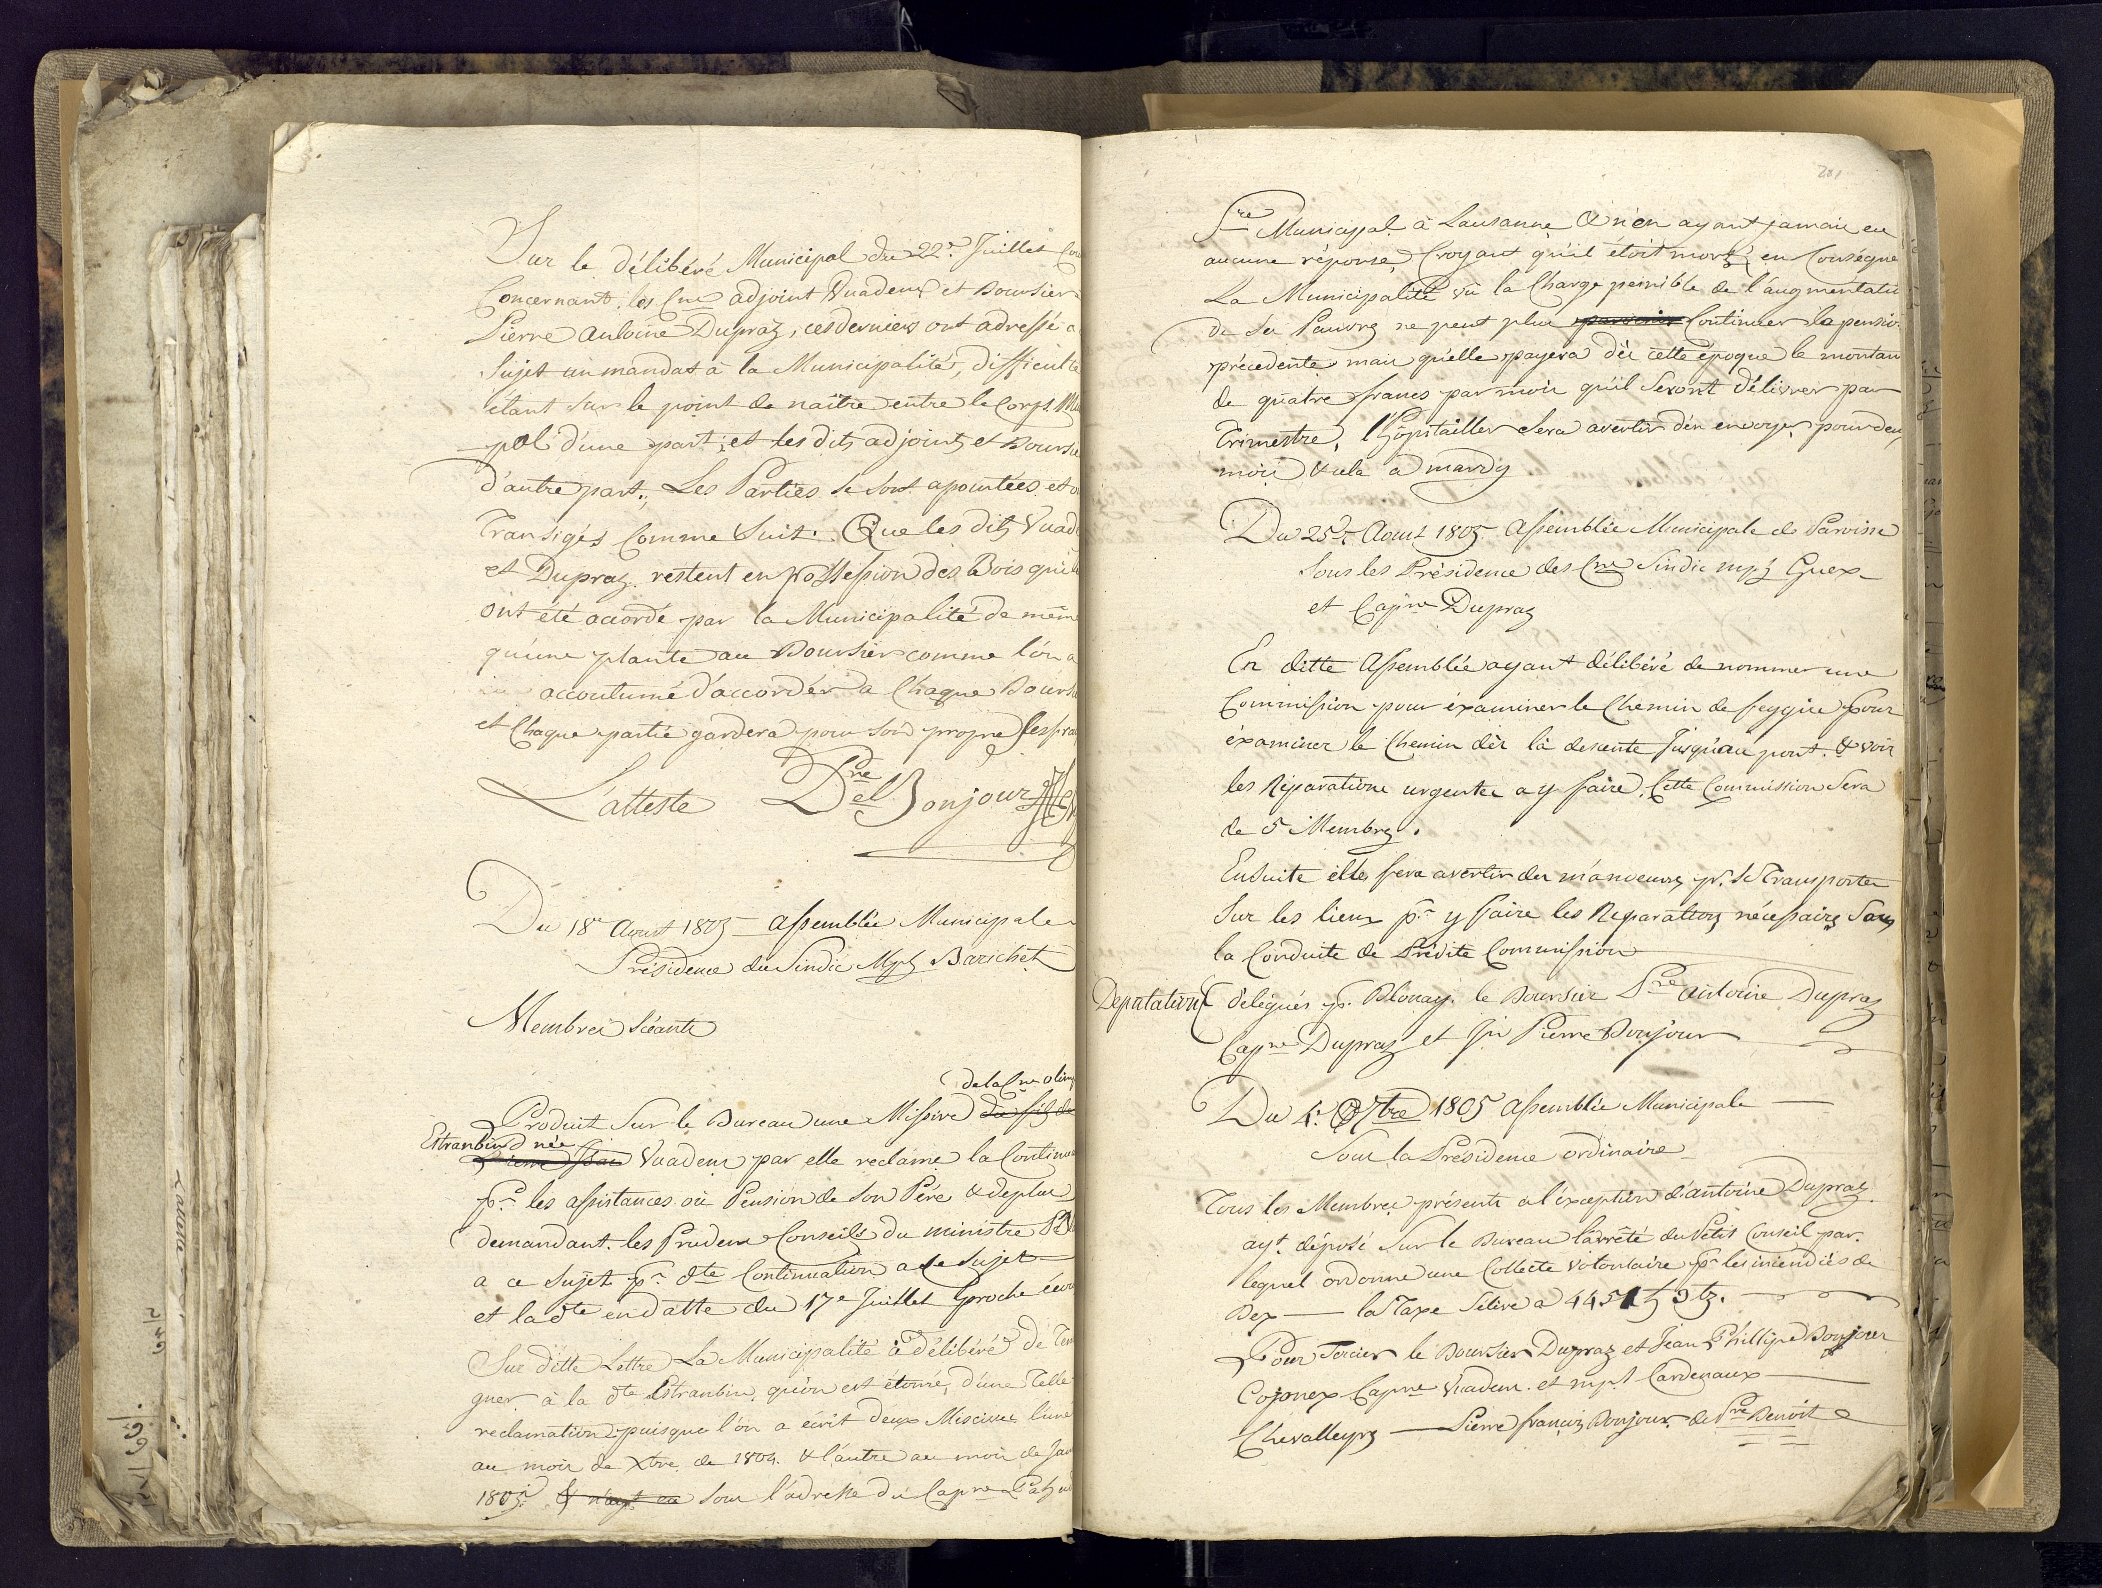 Sur le délibéré Municipal du 22e. Juillet
Concernant les Cns adjoint Vuadens et Boursier
Pierre Antoine Dupraz, ces derniers ont adressé
Sujet un mandat à la Municipalité, difficulté
étant Sur le point de naître entre le Corps
pal d'une part; et les dits adjoints et Boursie
d'autre part;, Les Parties Se Sont apointées et
Transigés Comme Suit. Que les dits Vuad
et Dupraz restent en possession des Bois qui
ont été acordé par la Municipalité de même
qu'une plante au Boursier comme l'on a
accoutumé d'accorder a Chaque Bours
et Chaque partie gardera pour Son propre
L'atteste Pre Bonjour
Du 18e Aoust 1805 — assemblée Municipale
Présidence du Sindic Barichet
Membres Séants
de la Cne olim
Produit Sur le Bureau une Missive du fils de
Estranbin née
Vuadens par elle reclame la Continua
pr les assistances ou Pension de Son Père & de plus
demandant. les Prudens Conseils du ministre
a ce Sujet pr dte Continuation a ce Sujet
et la dte en datte du 17e Juillet proche
Sur ditte Lettre La Municipalité à délibéré de
gner à la dte Estranbin, qu'on est étonné, d'une Telle
reclamation puisque l'on a écrit deux Missives l'une
au mois de Xbre de 1804. & l'autre au mois de Jan
1805. & n'ayt eu sous l'adresse du Capne
281
Municipal à Lausanne & n'en ayant jamais eu
aucune réponse, Croyant qu'il étoit mort, en Conséque
La Municipalité vû la Charge peinible de l'augmentatio
de Sa Pauvres ne peut plus Continuer la pensio
précédente mais qu'elle payera dès cette époque le montan
de quatre francs par mois qu'il Seront délivrer par
Trimestre, l'hôpitailler Sera avertir d'en envoyer pour deux
mois & cela a mardy
Du 25e Aoust 1805 Assemblée Municipale de Paroisse
Sous les Présidence des Cns Sindic Guex
et Capne Dupraz
En ditte Assemblée ayant délibéré de nommer une
Commission pour éxaminer le Chemin de feygire pour
éxaminer le Chemin dès la desente Jusqu'au pont. & voir
les Réparations urgentes a y faire, Cette Commission Sera
de 5 Membres.
Ensuite elle fera avertir des manoeuvres pr. Se Transporter
Sur les lieux pr y faire les Reparations nécessaires Sous
la Conduite de Prédite Commission
Deputation délégués pr. Blonay. le Boursier Pre Antoine Dupraz
Capne Dupraz et Jn Pierre Bonjour
Du 4e. 7bre 1805 Assemblée Municipale —
Sous la Présidence ordinaire
Tous les Membres présents a l'éxception d'antoine Dupraz.
ayt. déposé Sur le Bureau l'arrêté du Petit Conseil par.
lequel ordonne une Collecte volontaire pr les incendiés de
Bex — la Taxe S'élive a 4451
Pour Tercier le Boursier Dupraz et Jean Phillipe Bonjour
Cojonex Capne Vuadens. et Cardenaux —
Chevalleyres — Pierre françois Bonjour de Pre Benoit